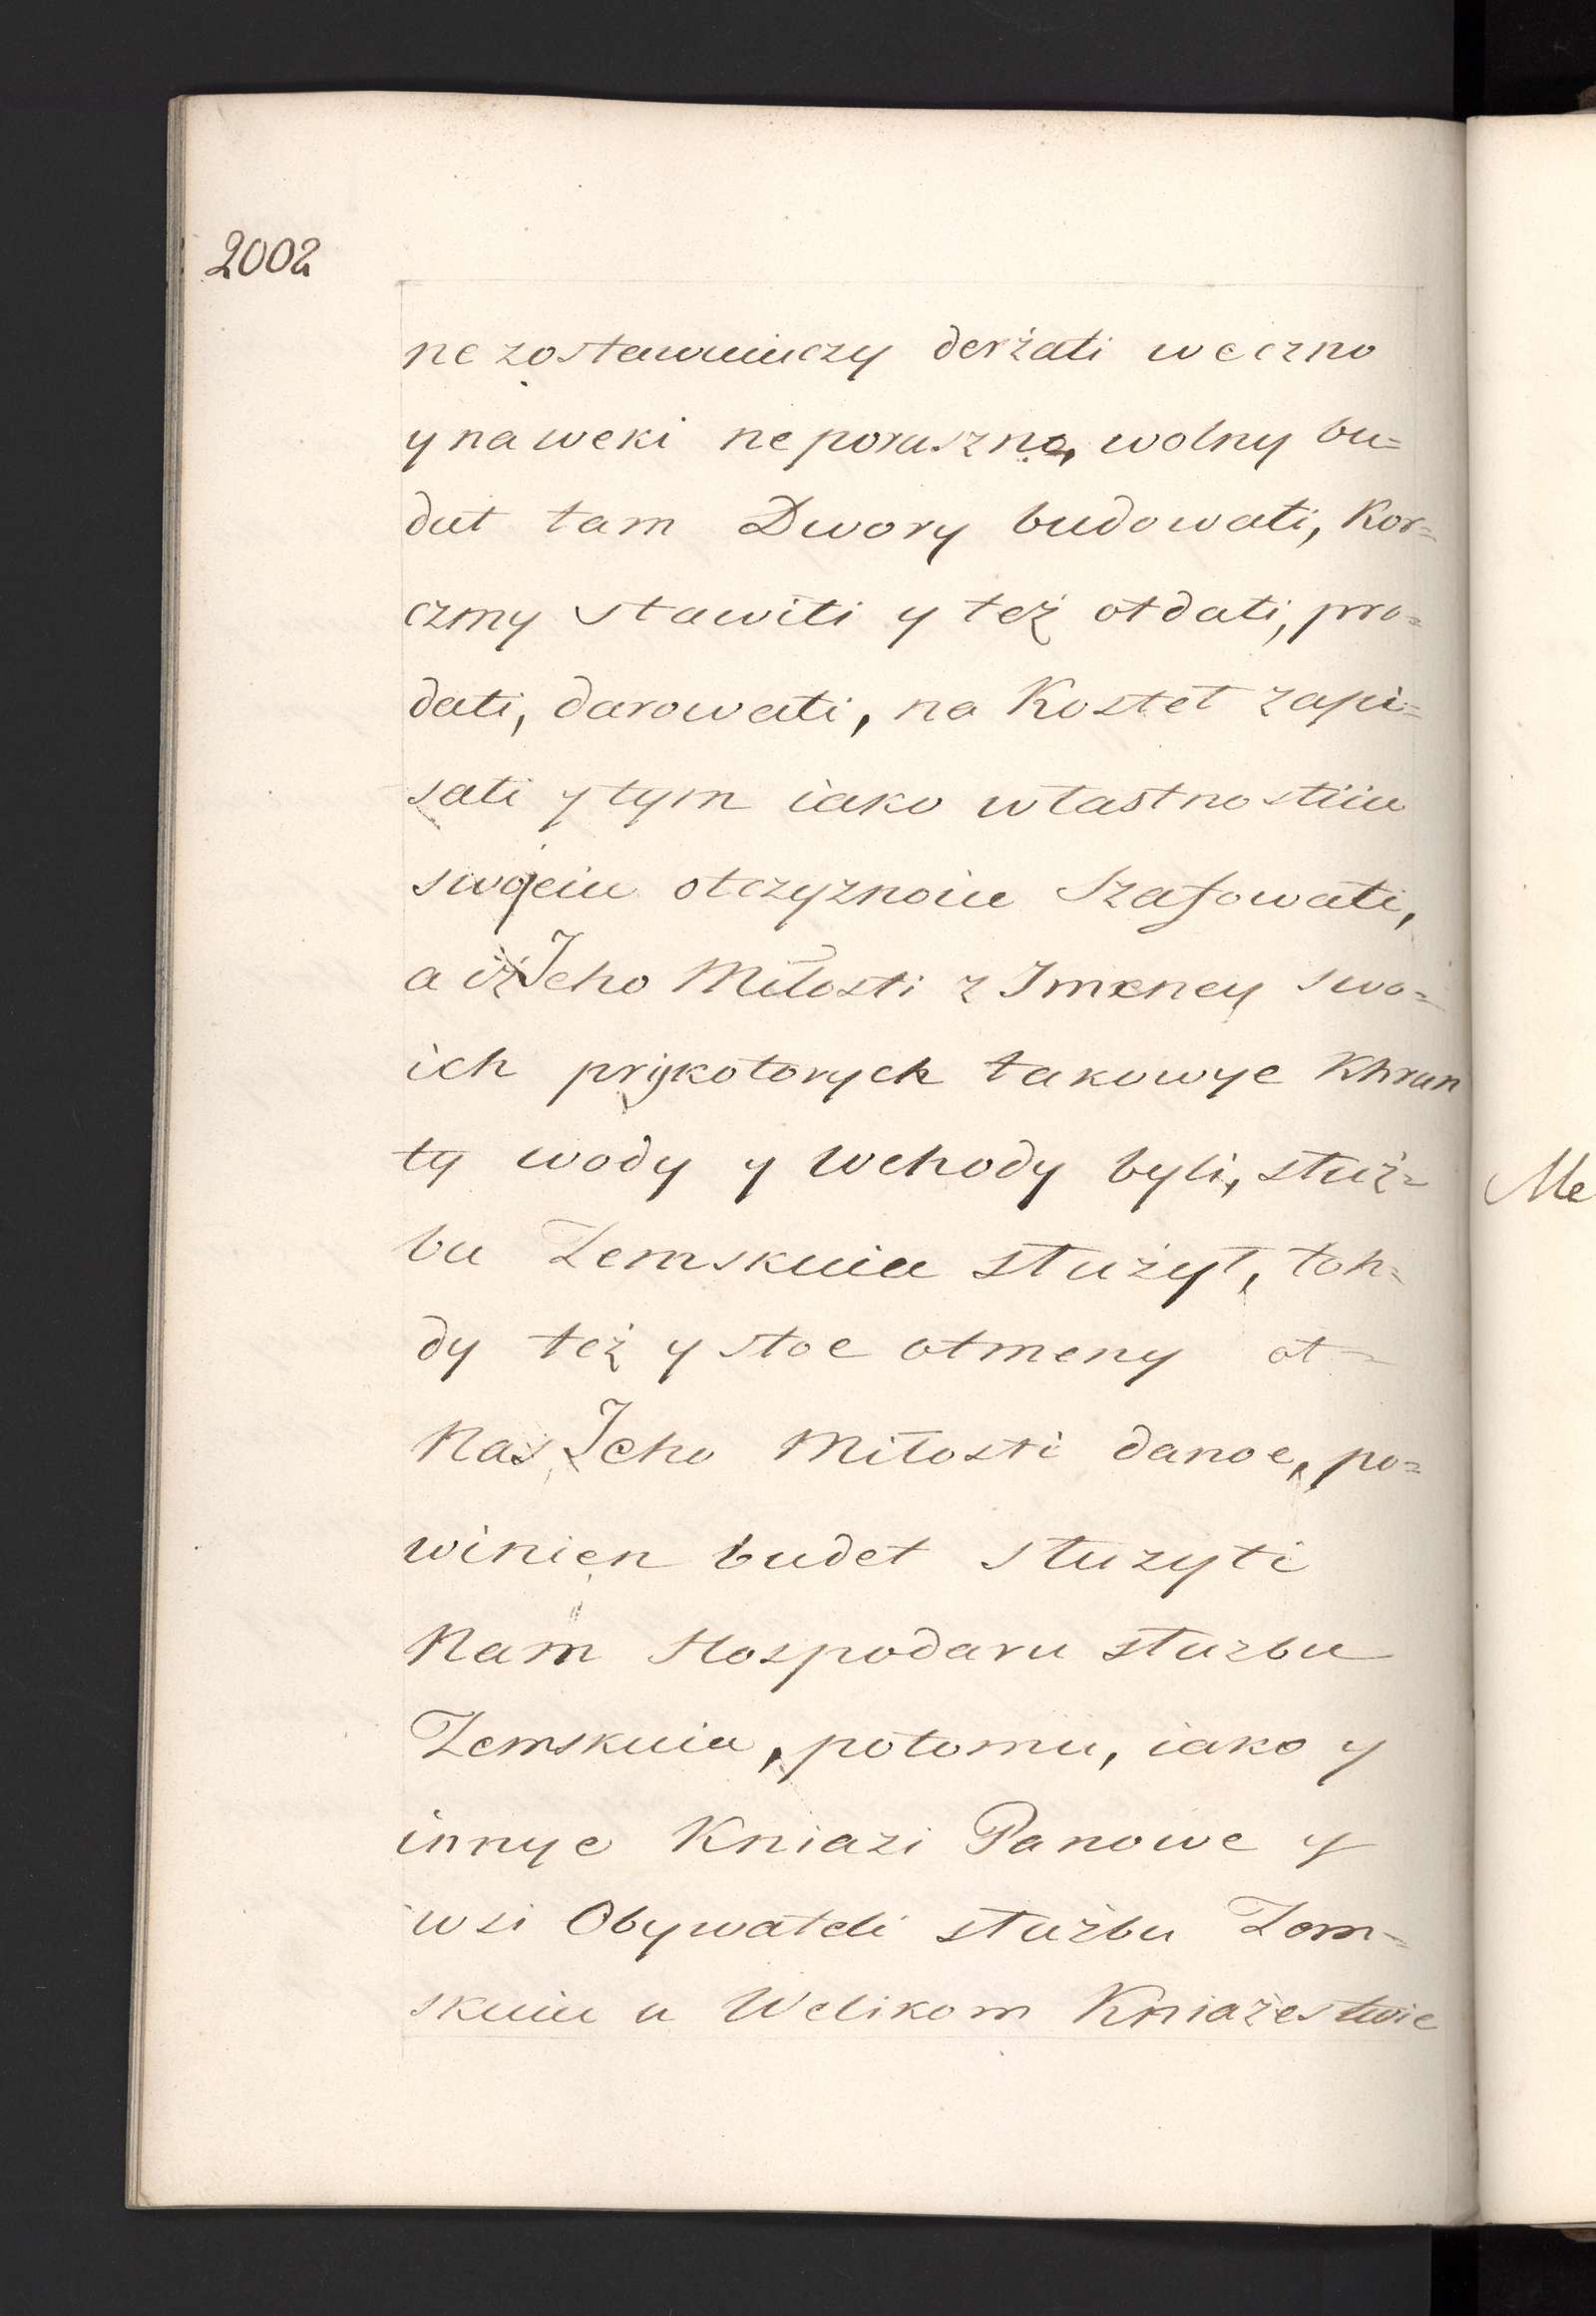 2002
ne zostawuiuczy derżati weczno
y na weki ne poruszno, wolny bu=
dut tam Dwory budowati, Kor=
czmy stawiti y też otdati, pro=
dati, darowati, na Kosteł zapi=
sati y tym iako własnostiiu
swojeiu otczyznoiu Szafowati,
a iż Jeho Miłosti z Imeney swo=
ich prykotorych takowye Khrun
ty wody y wchody byli, służ=
bu Zemskuiu służył, toh=
dy też y stoe otmeny ot=
Nas Jeho Miłosti danoe, po=
winien budet służyti
Nam Hospodaru służbu
Zemskuiu, potomu, iako y
innye Kniazi Panowe y
wsi Obywateli służbu Zem=
skuiu u Welikom Kniażestwie
Me